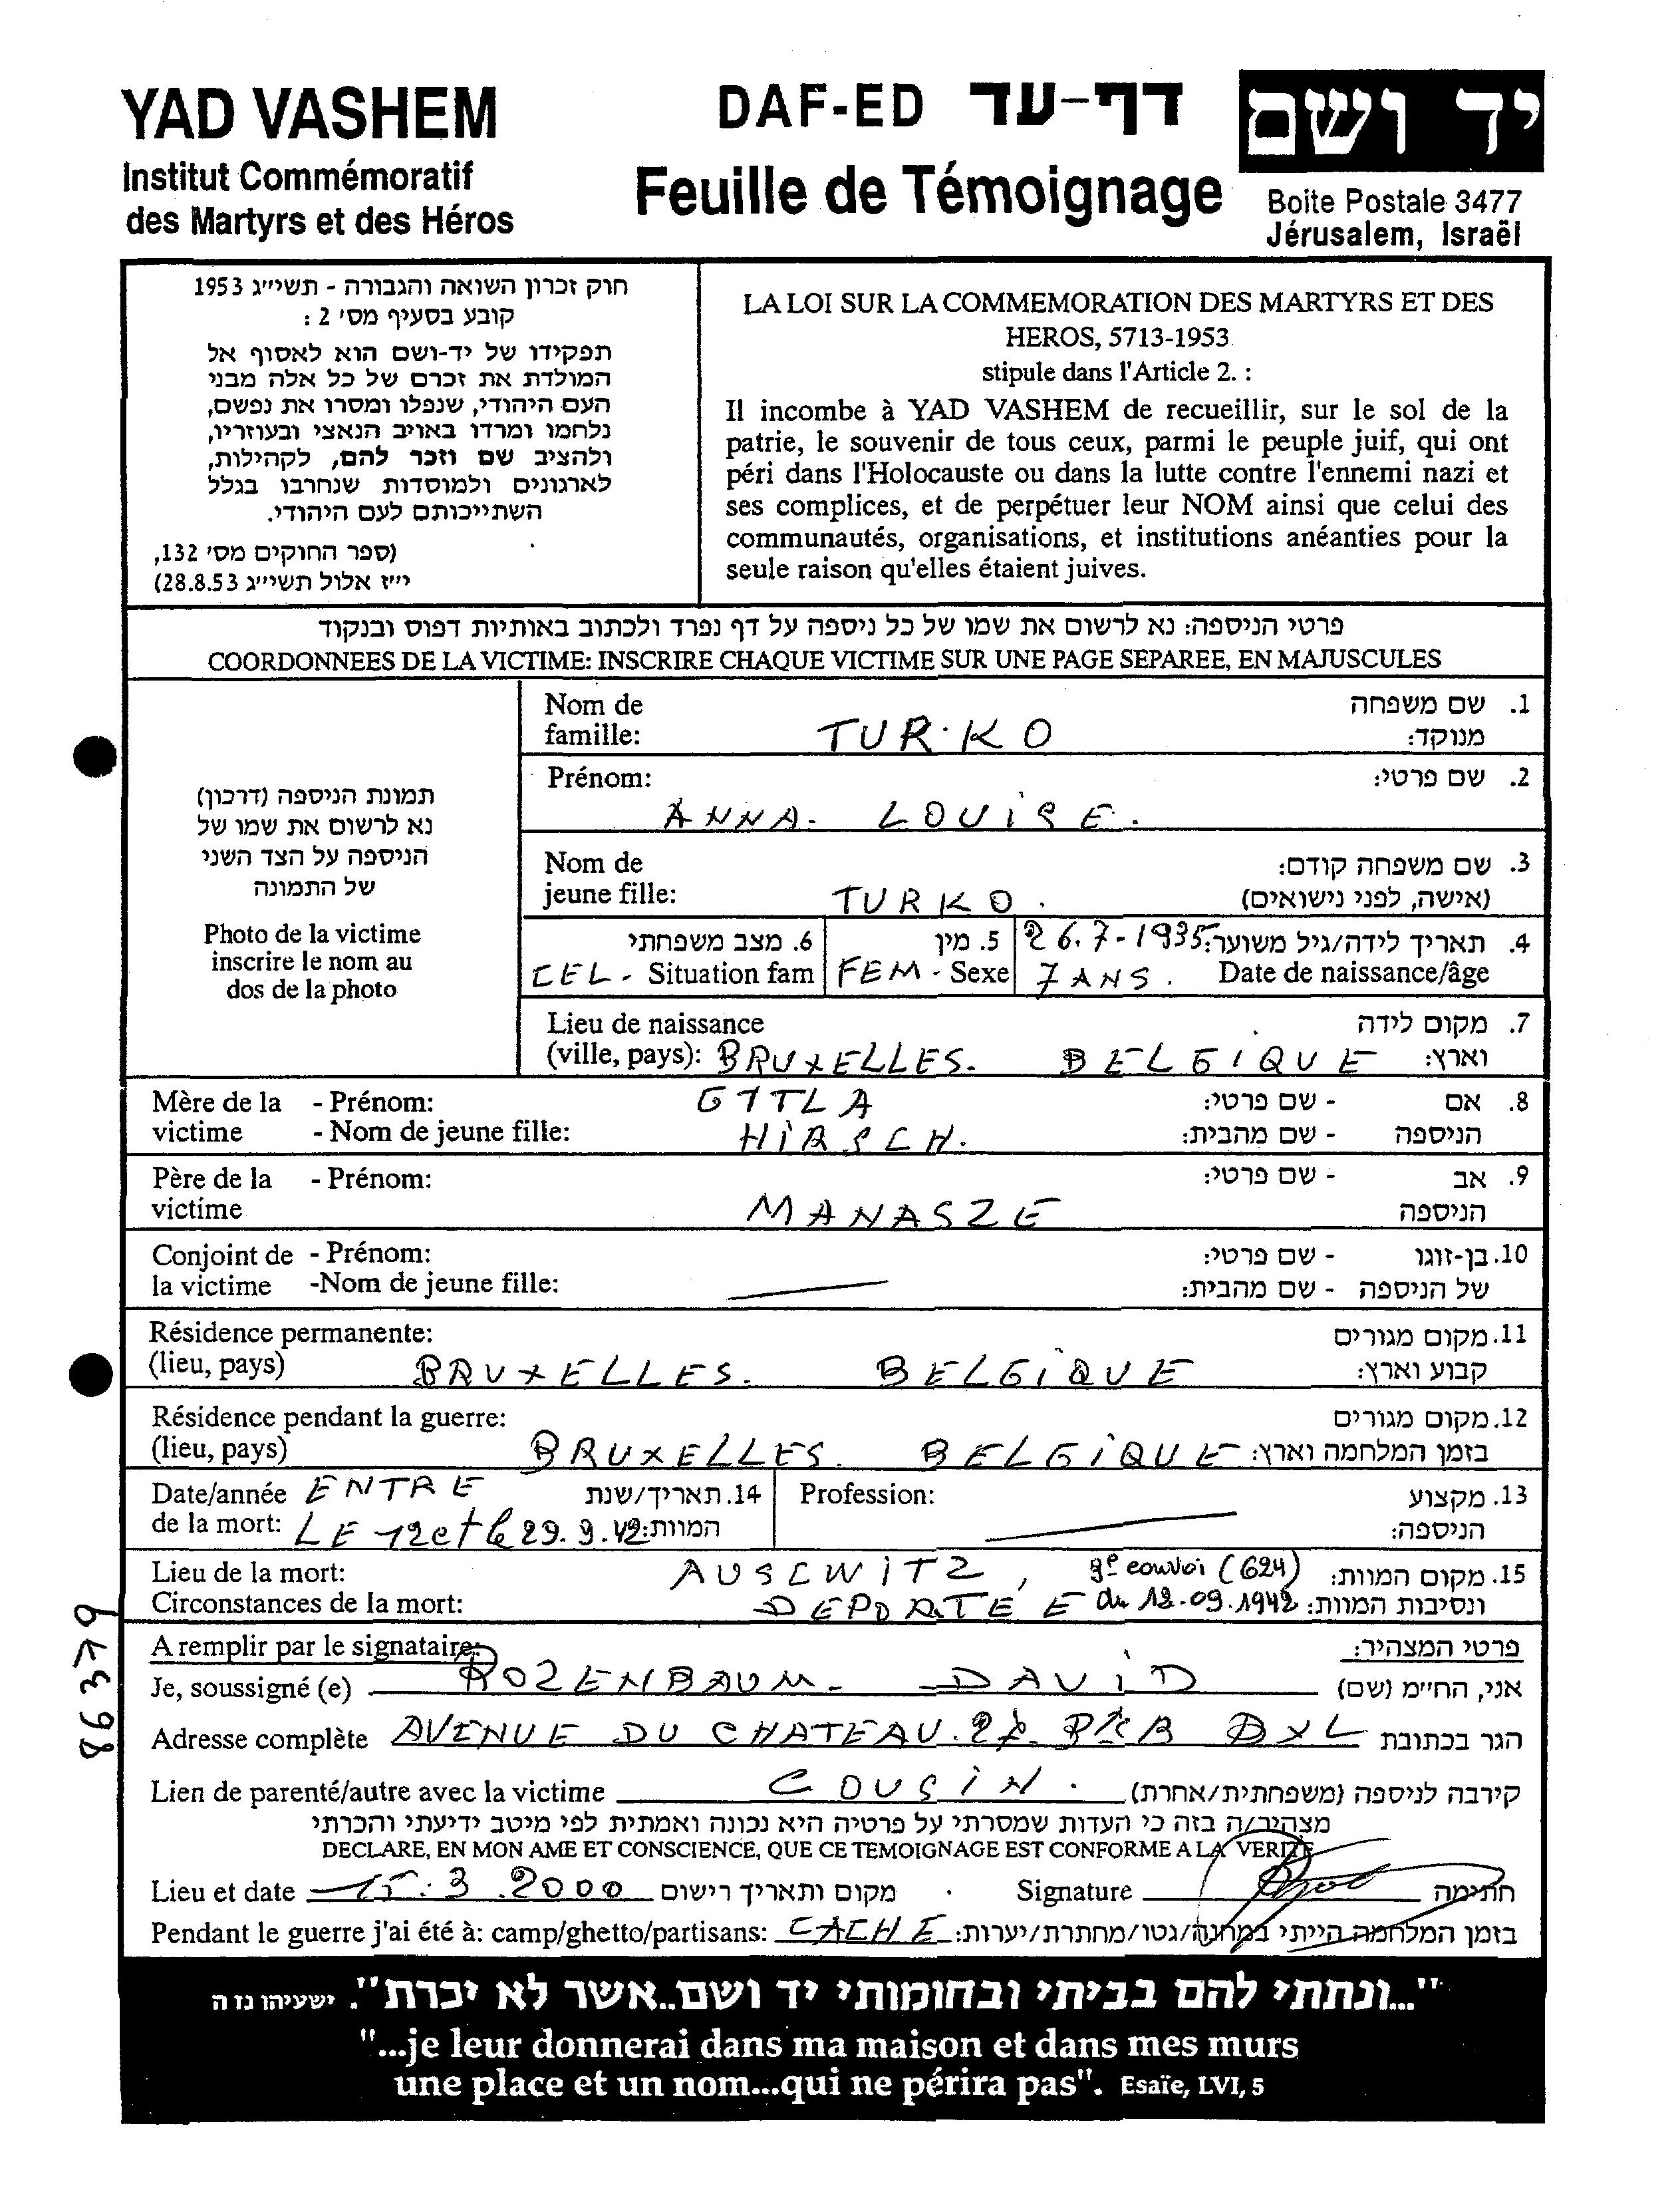 YAD VASHEM
Institut Commémoratif
des Martyrs et des Héros
DAF-ED דף-עד
Feuille de Témoignage
יד ושם
Boite Postale 3477
Jérusalem, Israël
חוק זכרון השואה והגבורה - תשי״ג 1953
קובע בסעיף מס׳ 2 :
תפקידו של יד-ושם הוא לאסוף אל
המולדת את זכרם של כל אלה מבני
העם היהודי, שנפלו ומסרו את נפשם,
נלחמו ומרדו באויב הנאצי ובעוזריו,
ולהציב שם וזכר להם, לקהילות,
לארגונים ולמוסדות שנחרבו בגלל
השתייכותם לעם היהודי.
(ספר החוקים מס׳ 132,
י״ז אלול תשי״ג 28.8.53)
LA LOI SUR LA COMMEMORATION DES MARTYRS ET DES
HEROS, 5713-1953
stipule dans l'Article 2. :
Il incombe à YAD VASHEM de recueillir, sur le sol de la
patrie, le souvenir de tous ceux, parmi le peuple juif, qui ont
péri dans l'Holocauste ou dans la lutte contre l'ennemi nazi et
ses complices, et de perpétuer leur NOM ainsi que celui des
communautés, organisations, et institutions anéanties pour la
seule raison qu'elles étaient juives.
פרטי הניספה: נא לרשום את שמו של כל ניספה על דף נפרד ולכתוב באותיות דפוס ובנקוד
COORDONNEES DE LA VICTIME: INSCRIRE CHAQUE VICTIME SUR UNE PAGE SEPAREE, EN MAJUSCULES
תמונת הניספה (דרכון)
נא לרשום את שמו של
הניספה על הצד השני
של התמונה
Photo de la victime
inscrire le nom au
dos de la photo
Nom de 1. שם משפחה
famille: TURKO מנוקד:
Prénom: 2. שם פרטי:
ANNA- LOUISE.
Nom de 3. שם משפחה קודם:
jeune fille: TURKO. (אישה, לפני נישואים)
6. מצב משפחתי 5. מין 26.7-1935 4. תאריך לידה/גיל משוער:
CEL- Situation fam FEM- Sexe 7 ANS. Date de naissance/âge
Lieu de naissance 7. מקום לידה
(ville, pays): BRUXELLES. BELGIQUE וארץ:
Mère de la - Prénom: GITLA - שם פרטי: 8. אם
victime - Nom de jeune fille: HIRSCH. - שם מהבית: הניספה
Père de la - Prénom: - שם פרטי: 9. אב
victime MANASZE הניספה
Conjoint de - Prénom: - שם פרטי: 10. בן-זוגו
la victime -Nom de jeune fille: - שם מהבית: של הניספה
Résidence permanente: 11. מקום מגורים
(lieu, pays) BRUXELLES. BELGIQUE קבוע וארץ:
Résidence pendant la guerre: 12. מקום מגורים
(lieu, pays) BRUXELLES. BELGIQUE בזמן המלחמה וארץ:
Date/année ENTRE 14. תאריך/שנת Profession: 13. מקצוע
de la mort: LE 12 et le 29.9.42 המוות: הניספה:
Lieu de la mort: AUSCWITZ, 9e convoi (624) 15. מקום המוות:
Circonstances de la mort: DEPORTEE du 12.09.1942 ונסיבות המוות:
A remplir par le signataire: פרטי המצהיר:
Je, soussigné (e) ROZENBAUM- DAVID אני, החיימ (שם)
Adresse complète AVENUE DU CHATEAU. BXL הגר בכתובת
Lien de parenté/autre avec la victime COUSIN. קירבה לניספה (משפחתית/אחרת)
מצהיר/ה בזה כי העדות שמסרתי על פרטיה היא נכונה ואמתית לפי מיטב ידיעתי והכרתי
DECLARE, EN MON AME ET CONSCIENCE, QUE CE TEMOIGNAGE EST CONFORME A LA VERITE
Lieu et date 15.3.2000 מקום ותאריך רישום Signature חתימה
Pendant le guerre j'ai été à: camp/ghetto/partisans: CACHE בזמן המלחמה הייתי במחנה/גטו/מחתרת/יערות:
86379
"...ונתתי להם בביתי ובחומותי יד ושם..אשר לא יכרת". ישעיהו נז ה
"...je leur donnerai dans ma maison et dans mes murs
une place et un nom...qui ne périra pas". Esaïe, LVI, 5